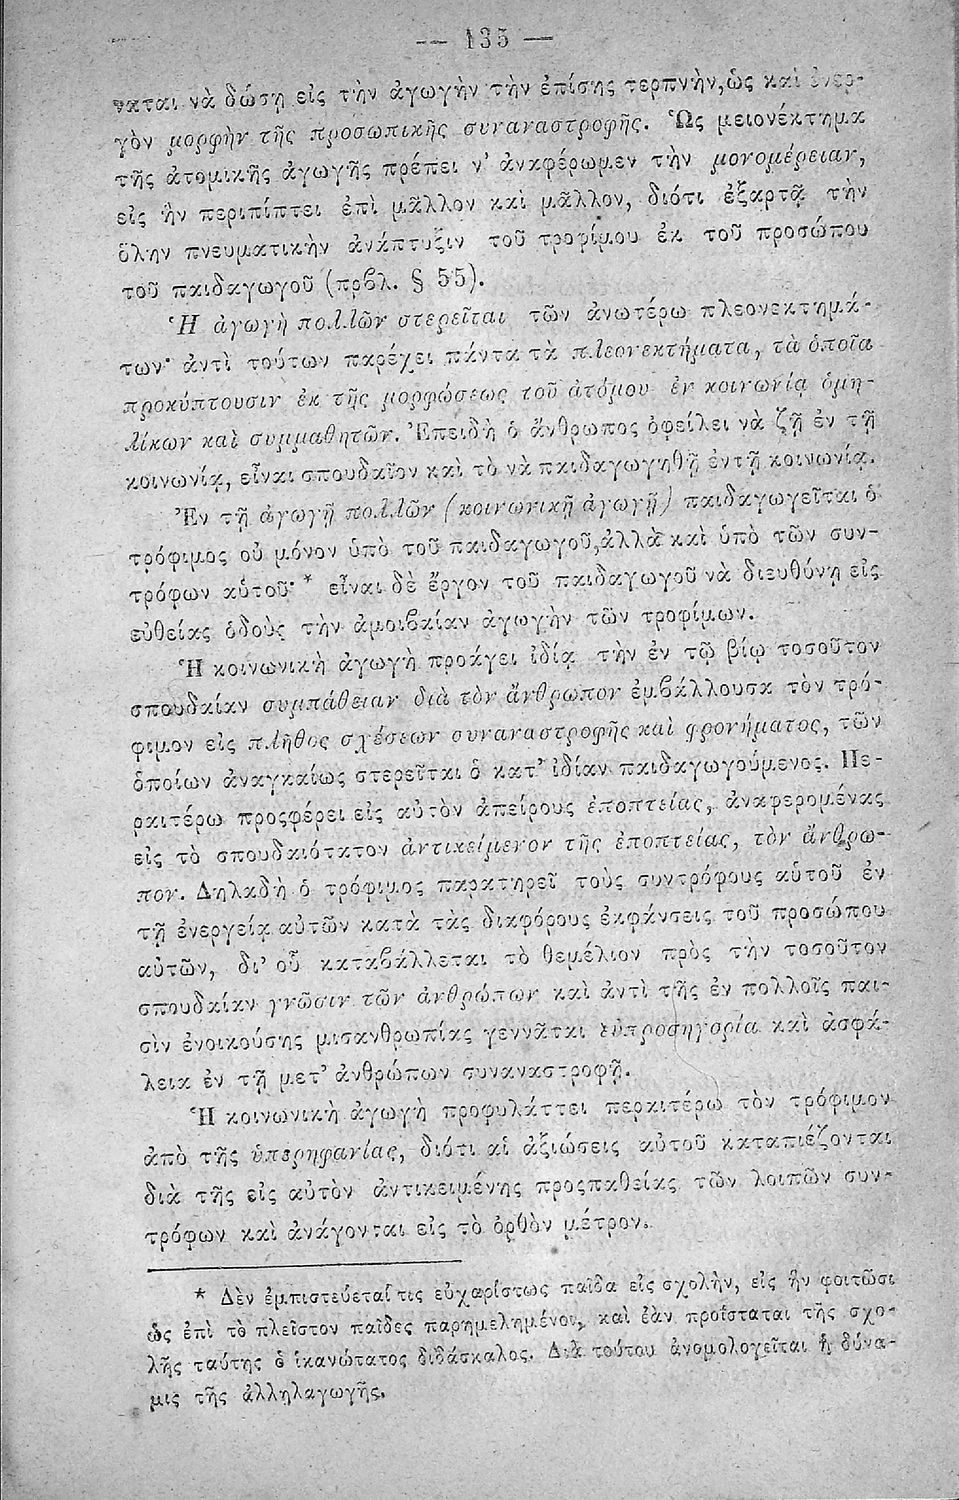 — 135 —
ναται νὰ δώσῃ εἰς τὴν ἀγωγὴν τὴν ἐπίσης τερπνὴν, ὡς καὶ ἐνερ-
γὸν μορφὴν τῆς προσωπικῆς συναναστροφῆς. Ὡς μειονέκτημα
τῆς ἀτομικῆς ἀγωγῆς πρέπει ν' ἀναφέρωμεν τὴν μονομέρειαν,
εἰς ἣν περιπίπτει ἐπὶ μᾶλλον καὶ μᾶλλον, διότι ἐξαρτᾷ τὴν
ὅλην πνευματικὴν ἀνάπτυξιν τοῦ τροφίμου ἐκ τοῦ προσώπου
τοῦ παιδαγωγοῦ (πρβλ. § 55).
Ἡ ἀγωγὴ πολλῶν στερεῖται τῶν ἀνωτέρω πλεονεκτημά-
των· ἀντὶ τούτων παρέχει πάντα τὰ πλεονεκτήματα, τὰ ὁποῖα
προκύπτουσιν ἐκ τῆς μορφώσεως τοῦ ἀτόμου ἐν κοινωνίᾳ ὁμη-
λίκων καὶ συμμαθητῶν. Ἐπειδὴ ὁ ἄνθρωπος ὀφείλει νὰ ζῇ ἐν τῇ
κοινωνίᾳ, εἶναι σπουδαῖον καὶ τὸ νὰ παιδαγωγηθῇ ἐντῇ κοινωνίᾳ.
Ἐν τῇ ἀγωγῇ πολλῶν (κοινωνικῇ ἀγωγῇ) παιδαγωγεῖται ὁ
τρόφιμος οὐ μόνον ὑπὸ τοῦ παιδαγωγοῦ, ἀλλὰ καὶ ὑπὸ τῶν συν-
τρόφων αὑτοῦ· * εἶναι δὲ ἔργον τοῦ παιδαγωγοῦ νὰ διευθύνῃ εἰς
εὐθείας ὁδοὺς τὴν ἀμοιβαίαν ἀγωγὴν τῶν τροφίμων.
Ἡ κοινωνικὴ ἀγωγὴ προάγει ἰδίᾳ τὴν ἐν τῷ βίῳ τοσοῦτον
σπουδαίαν συμπάθειαν διὰ τὸν ἄνθρωπον ἐμβάλλουσα τὸν τρό-
φιμον εἰς πλῆθος σχέσεων συναναστροφῆς καὶ φρονήματος, τῶν
ὁποίων ἀναγκαίως στερεῖται ὁ κατ' ἰδίαν παιδαγωγούμενος. Πε-
ραιτέρω προςφέρει εἰς αὐτὸν ἀπείρους ἐποπτείας, ἀναφερομένας
εἰς τὸ σπουδαιότατον ἀντικείμενον τῆς ἐποπτείας, τὸν ἄνθρω-
πον. Δηλαδὴ ὁ τρόφιμος παρατηρεῖ τοὺς συντρόφους αὑτοῦ ἐν
τῇ ἐνεργείᾳ αὐτῶν κατὰ τὰς διαφόρους ἐκφάνσεις τοῦ προσώπου
αὐτῶν, δι' οὗ καταβάλλεται τὸ θεμέλιον πρὸς τὴν τοσοῦτον
σπουδαίαν γνῶσιν τῶν ἀνθρώπων καὶ ἀντὶ τῆς ἐν πολλοῖς παι-
σὶν ἐνοικούσης μισανθρωπίας γεννᾶται εὐπροσηγορία καὶ ἀσφά-
λεια ἐν τῇ μετ' ἀνθρώπων συναναστροφῇ.
Ἡ κοινωνικὴ ἀγωγὴ προφυλάττει περαιτέρω τὸν τρόφιμον
ἀπὸ τῆς ὑπερηφανίας, διότι αἱ ἀξιώσεις αὐτοῦ καταπιέζονται
διὰ τῆς εἰς αὐτὸν ἀντικειμένης προςπαθείας τῶν λοιπῶν συν-
τρόφων καὶ ἀνάγονται εἰς τὸ ὀρθὸν μέτρον.
* Δὲν ἐμπιστεύεταί τις εὐχαρίστως παῖδα εἰς σχολὴν, εἰς ἣν φοιτῶσι
ὡς ἐπὶ τὸ πλεῖστον παῖδες παρημελημένοι, καὶ ἐὰν προΐσταται τῆς σχο-
λῆς ταύτης ὁ ἱκανώτατος διδάσκαλος. Διὰ τούτου ἀνομολογεῖται ἡ δύνα-
μις τῆς ἀλληλαγωγῆς.